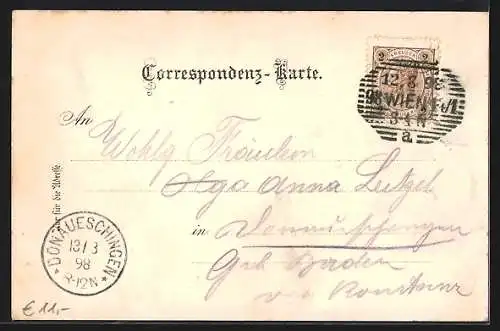 Correspondenz-Karte.
2 2
12.8.98
98 WIEN 1/1
3-4 N
a
An
Wohlg Fräulein
Olga Anna Leitzel
in Donaueschingen
Grh Baden
v. Konstanz
für die Adresse.
*DONAUESCHINGEN*
13/3
98
-12N
€ 11,-